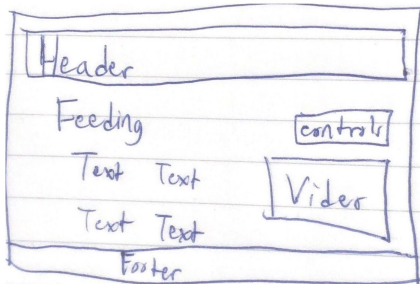 Header
Feeding
controls
Text Text
Video
Text Text
Footer